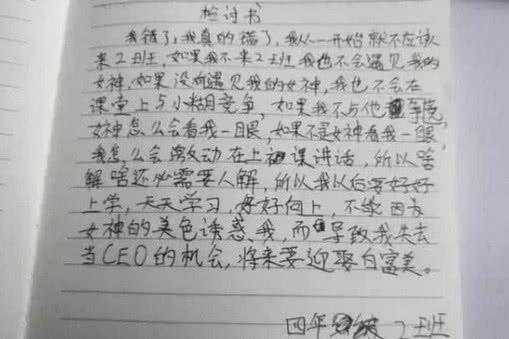 检讨书
我错了，我真的错了，我从一开始就不应该
来2班，如果我不来2班我也不会遇见我的
女神，如果没有遇见我的女神，我也不会在
课堂上与小胡竞争，如果我不与他争宠，
女神怎么会看我一眼，如果不是女神看我一眼
我怎么会激动在上课讲话，所以啥
解啥还必需要人解，所以我以后要好好
上学，天天学习，好好向上，不能因为
女神的美色诱惑我，而导致我失去
当CEO的机会，将来要迎娶白富美。
四年级2班